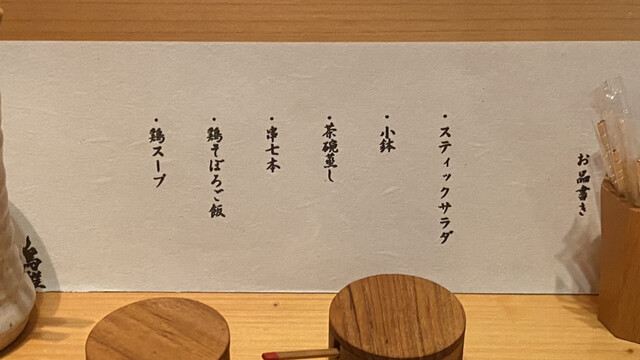 お品書き
・スティックサラダ
・小鉢
・茶碗蒸し
・串七本
・鶏そぼろご飯
・鶏スープ